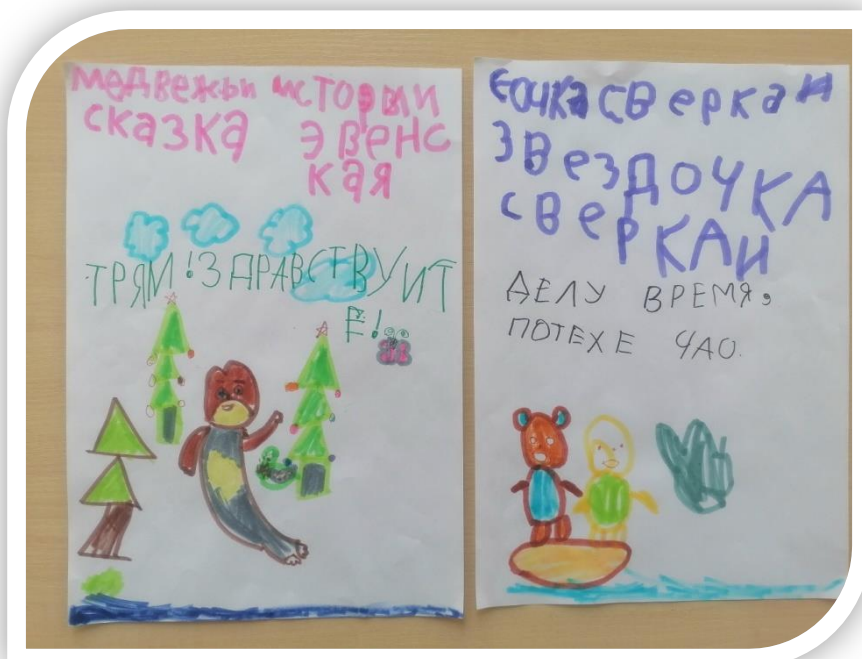 медвежьи истории
сказка эвенс
кая
ТРЯМ!ЗДРАВСТВУИТ
Е!
ЕОЧКА СВеркаи
ЗВеЗДОЧКА
СВеРКАИ
ДЕЛУ ВРЕМЯ,
ПОТЕХЕ ЧАО.